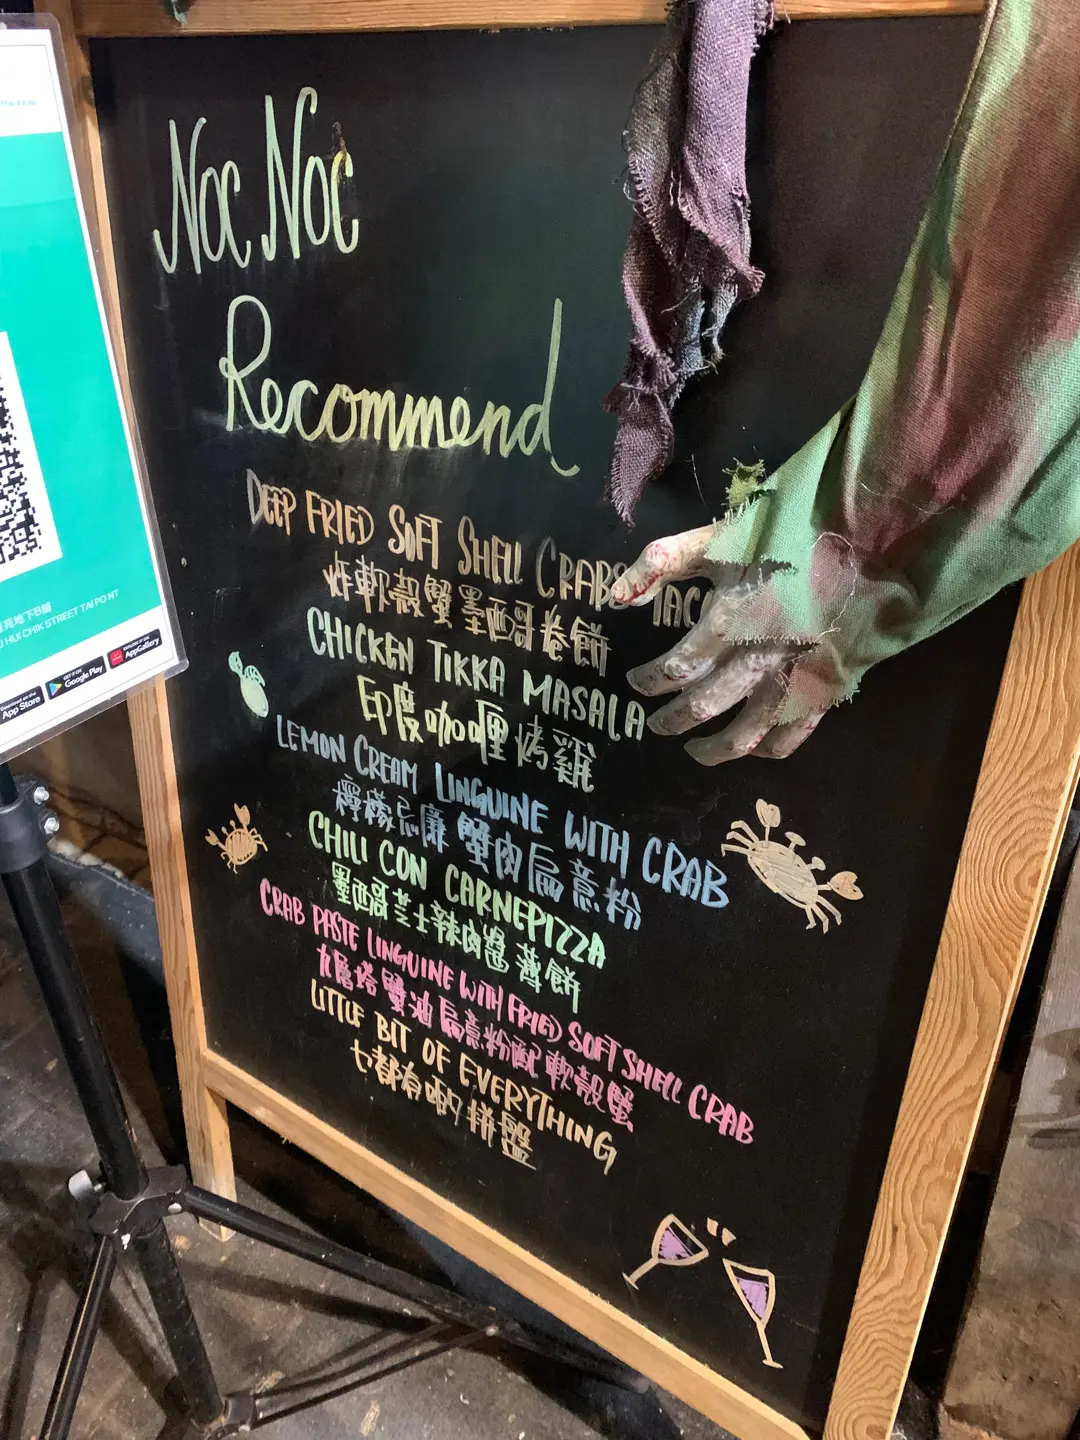 Noc Noc
Recommend
DEEP FRIED SOFT SHELL CRABS TACO
炸軟殼蟹墨西哥卷餅
CHICKEN TIKKA MASALA
印度咖喱烤雞
LEMON CREAM LINGUINE WITH CRAB
檸檬忌廉蟹肉扁意粉
CHILI CON CARNE PIZZA
墨西哥芝士辣肉醬薄餅
CRAB PASTE LINGUINE WITH FRIED SOFT SHELL CRAB
九層塔蟹油扁意粉配軟殼蟹
LITTLE BIT OF EVERYTHING
乜都有啲拼盤
地下B舖
HUI CHIK STREET TAI PO NT
App Store
GET IT ON
Google Play
AppGallery